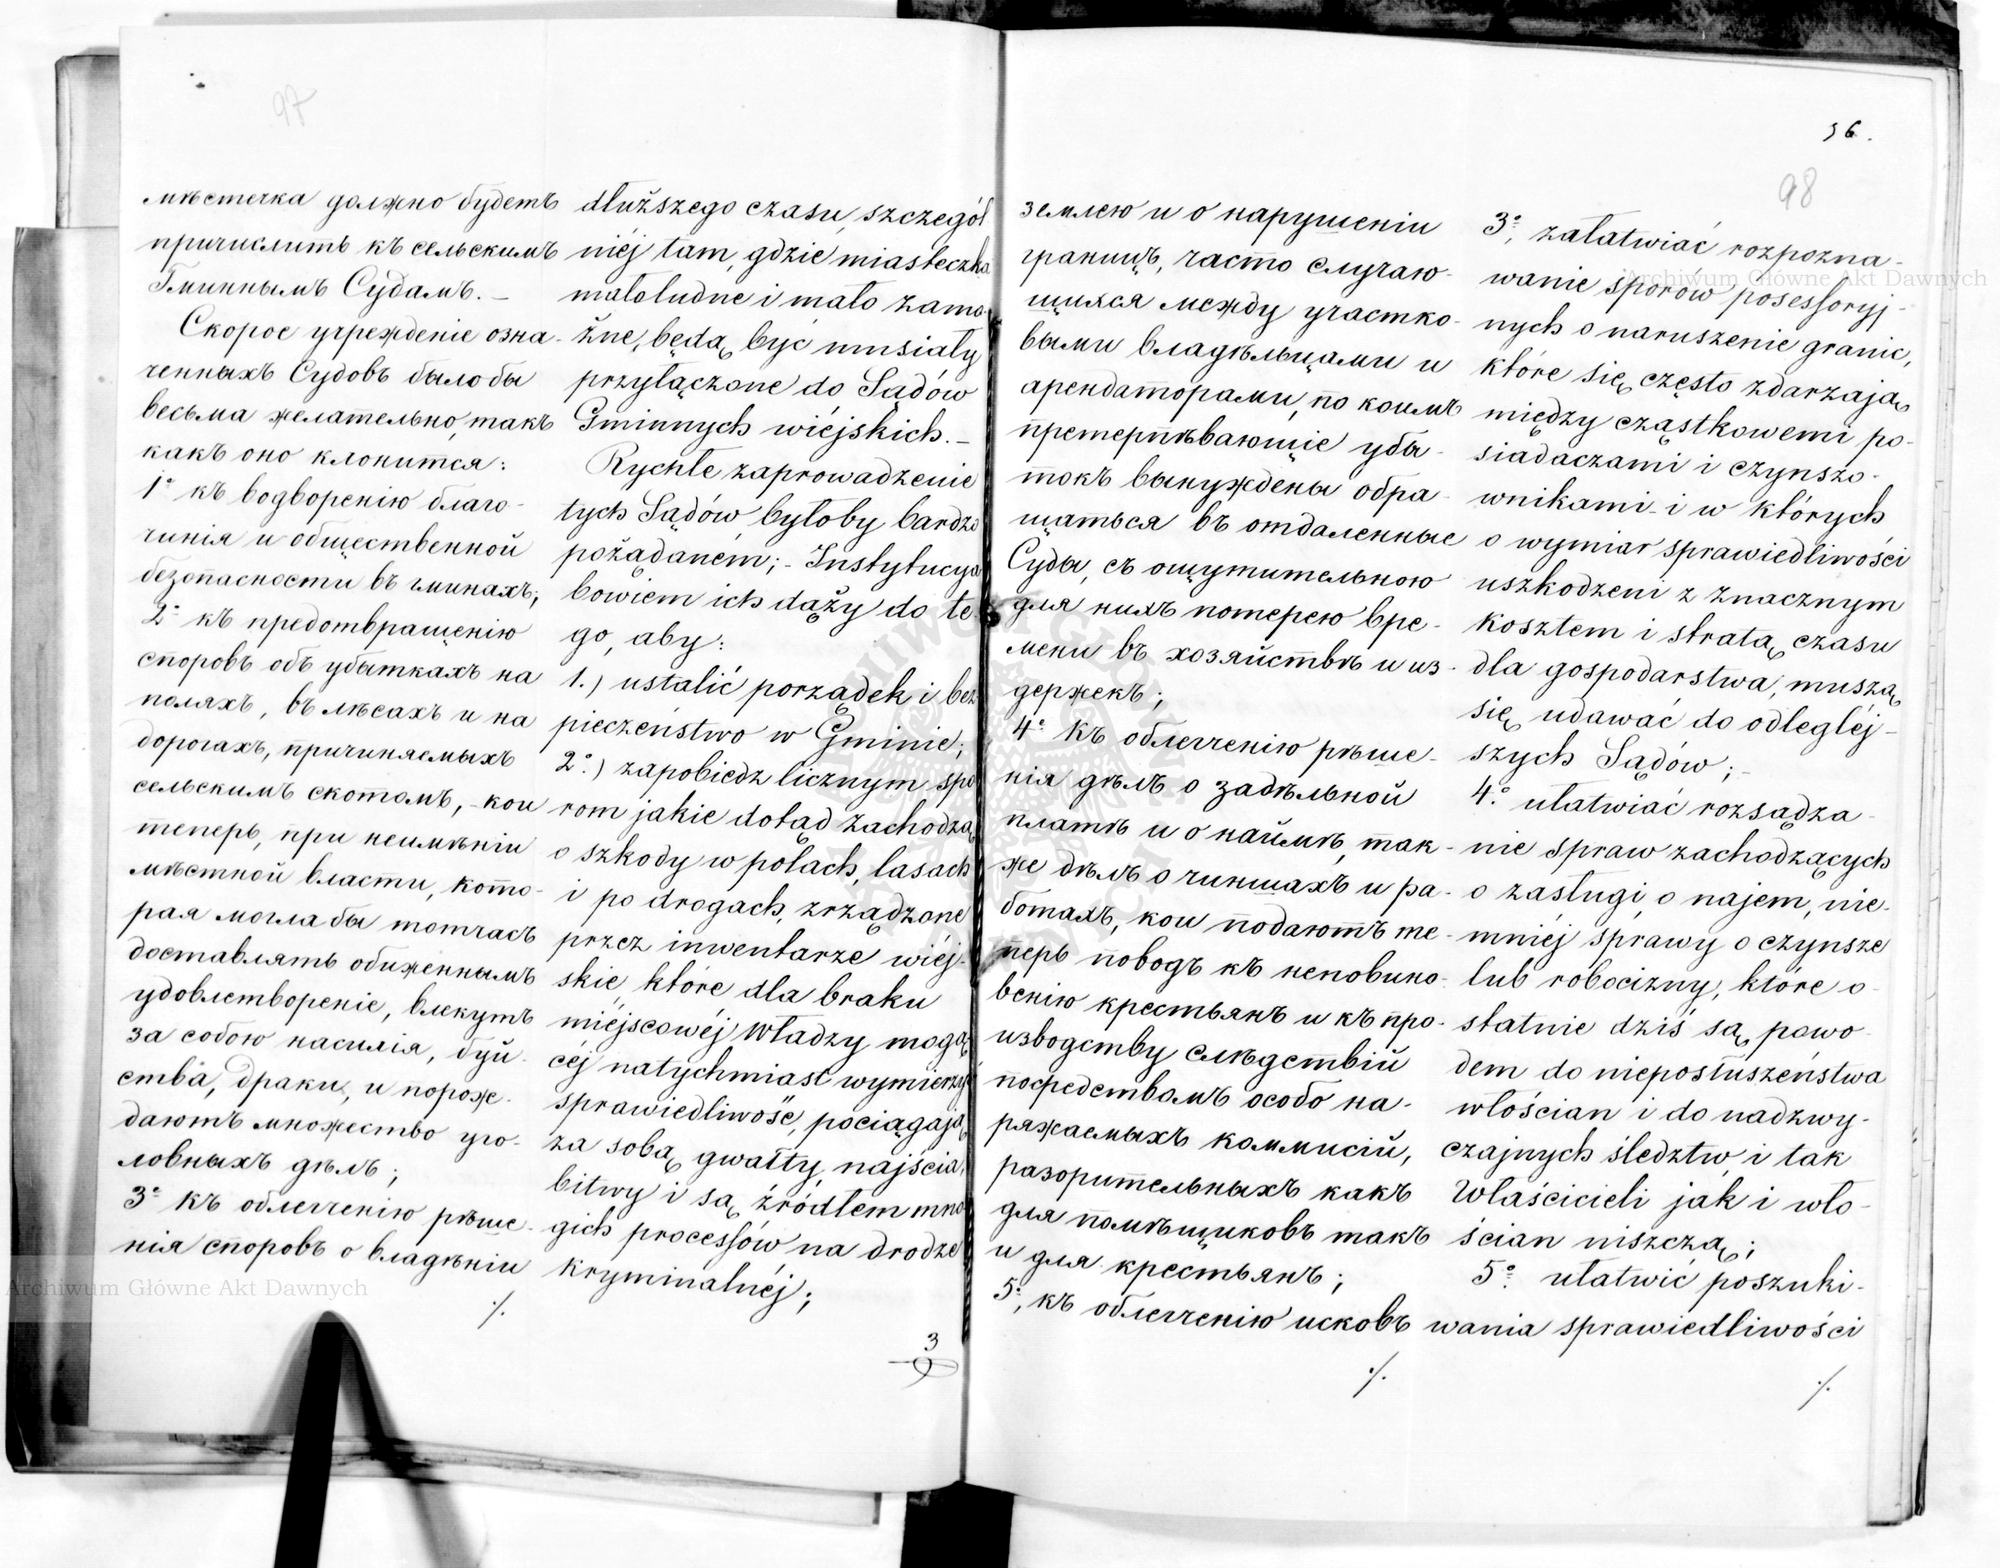 97
мѣстечка должно будетъ
причислить къ сельскимъ
Гминнымъ Судамъ. –
Скорое учрежденіе озна-
ченныхъ Судовъ было бы
весьма желательно, такъ
какъ оно клонится:
1º къ водворенію благо-
чинія и общественной
безопасности въ гминахъ;
2º къ предотвращенію
споровъ объ убыткахъ на
поляхъ, въ лѣсахъ и на
дорогахъ, причиняемыхъ
сельскимъ скотомъ, – кои
теперь, при неимѣніи
мѣстной власти, кото-
рая могла бы тотчасъ
доставлять обиженнымъ
удовлетвореніе, влекутъ
за собою насилія, буй-
ства, драки, и порож-
даютъ множество уго-
ловныхъ дѣлъ;
3º къ облегченію рѣше-
нія споровъ о владѣніи
./.
dłuższego czasu, szczegól
niéj tam, gdzie miasteczka
małoludne i mało zamo
żne, będą być musiały
przyłączone do Sądów
Gminnych wiéjskich. –
Rychłe zaprowadzenie
tych Sądów byłoby bardzo
pożądaném; – Instytucya
bowiem ich dąży do te-
go, aby:
1.) ustalić porządek i bez
pieczeństwo w Gminie;
2º.) zapobiedz licznym spo
rom jakie dotąd zachodzą
o szkody w polach, lasach
i po drogach, zrządzone
przez inwentarze wiéj-
skie które dla braku
miéjscowéj Władzy mogą
céj natychmiast wymierzyć
sprawiedliwość, pociągają
za sobą gwałty, najścia,
bitwy i są źródłem mno
gich processów na drodze
kryminalnéj;
3
36.
98
землею и о нарушеніи
границъ, часто случаю-
щихся между участко-
выми владѣльцами и
арендаторами, по коимъ
претерпѣвающіе убы-
токъ вынуждены обра-
щаться въ отдаленные
Суды, съ ощутительною
для нихъ потерею вре-
мени въ хозяйствѣ и из-
держекъ;
4º къ облегченію рѣше-
нія дѣлъ о задѣльной
платѣ и о наймѣ, так-
же дѣлъ о чиншахъ и ра-
ботахъ, кои подаютъ те-
перь поводъ къ неповино-
венію крестьянъ и къ про-
изводству слѣдствій
посредствомъ особо на-
ряжаемыхъ коммисій,
разорительныхъ какъ
для помѣщиковъ такъ
и для крестьянъ;
5º, къ облегченію исковъ
./.
3º, załatwiać rozpozna-
wanie sporów posessoryj-
nych o naruszenie granic,
które się często zdarzają
między cząstkowemi po-
siadaczami i czynszo-
wnikami i w których
o wymiar sprawiedliwości
uszkodzeni z znacznym
kosztem i stratą czasu
dla gospodarstwa, muszą
się udawać do odległéj-
szych Sądów; –
4º. ułatwiać rozsądza-
nie spraw zachodzących
o zasługi, o najem, nie-
mniéj sprawy o czynsze
lub robocizny, które o-
statnie dziś są powo-
dem do nieposłuszeństwa
włościan i do nadzwy-
czajnych śledztw, i tak
Właścicieli jak i wło-
ścian niszczą;
5º. ułatwić poszuki-
wania sprawiedliwości
./.
Archiwum Główne Akt Dawnych
Archiwum Główne Akt Dawnych